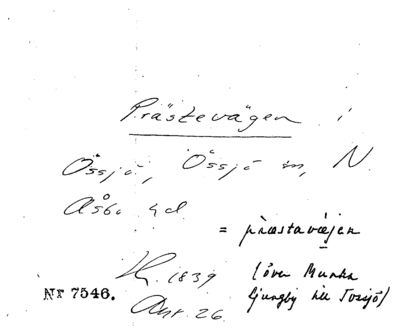 Prästevägen i
Össjö, Össjö sn, N.
Åsbo hd
= præstavæjen
1839 (över Munka
Nr 7546. Ljungby till Tossjö)
26.